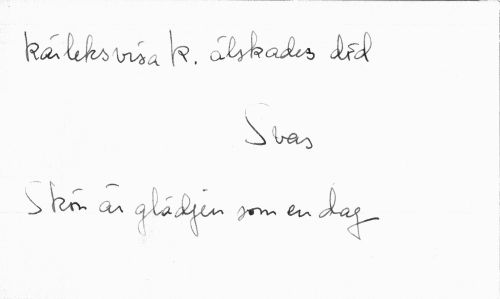 kärleksvisa k. älskades död
Svas
Skön är glädjen som en dag